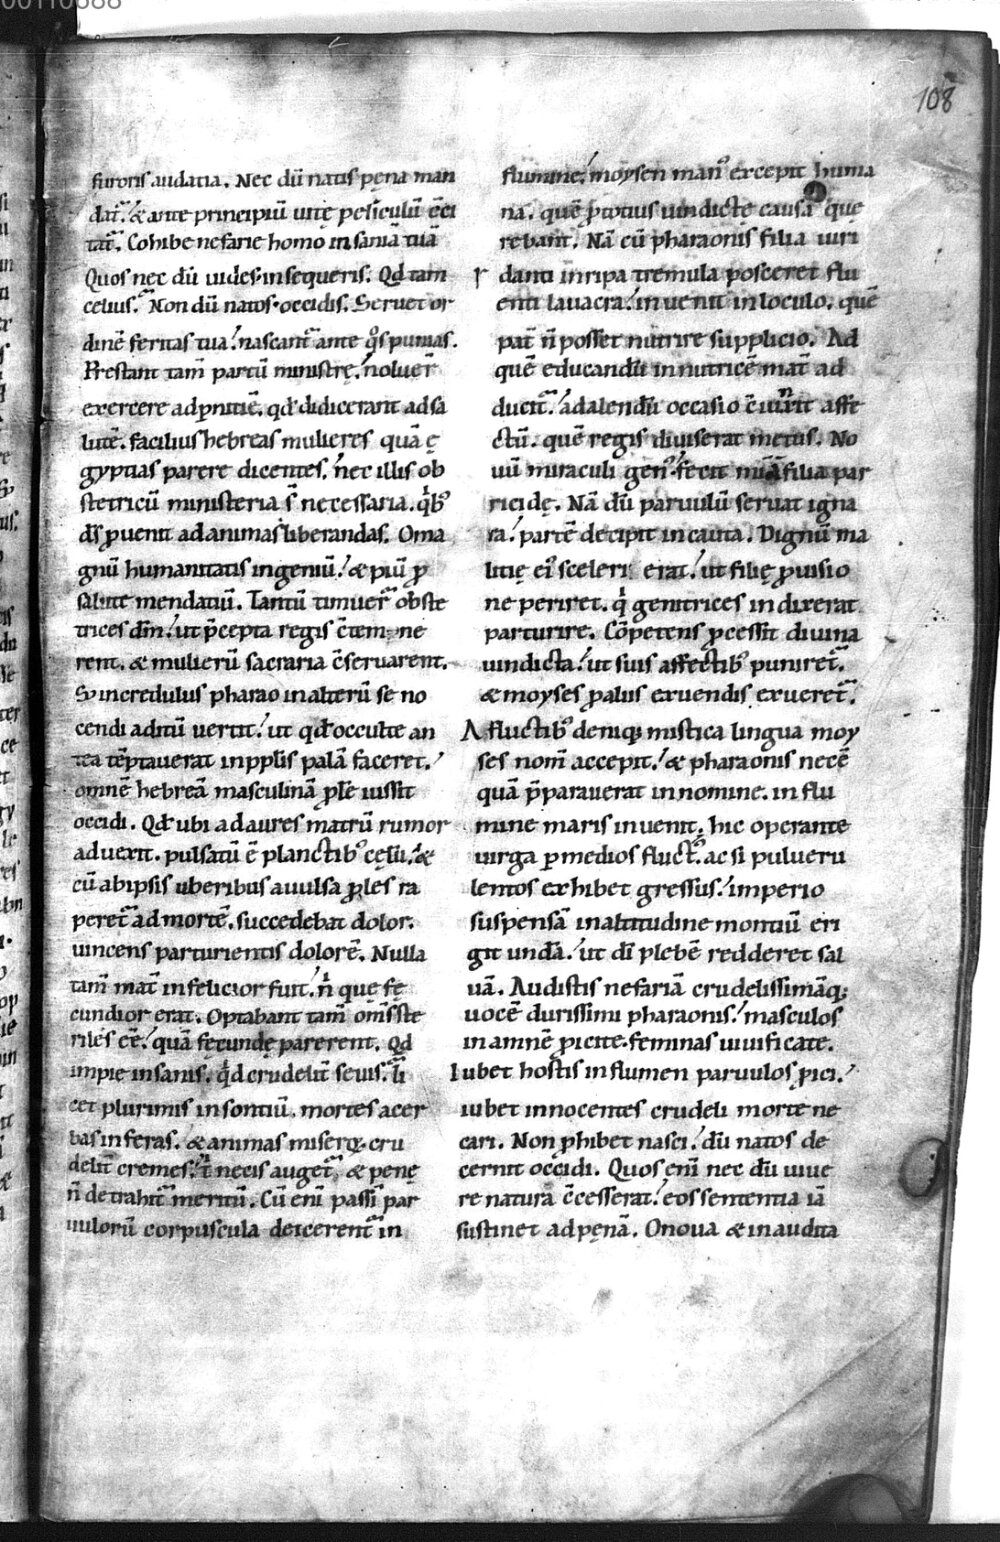 108
furoris audatia. Nec dũ natis pęna man
dat᷑. & ante principiũ uitę periculũ ẽci
tat᷑. Cohibe nefarie homo insaniã tuã
Quos nec dũ uides insequeris. Qđ tam
celius.᷑ Non dũ natos occidis. Seruet or
dinẽ feritas tua! nascant᷑ ante q̊s punias.
Prestant tam̃ partũ ministrę, noluer̃
exercere ad ꝑnitiẽ. qđ didicerant ad sa
lutẽ. facilius hebreas mulieres quã ę
gyptias parere dicentes. nec illis ob
stetricũ ministeria s̃ necessaria. qͥbꝰ
ds̃ p̃uenit ad animas liberandas. O ma
gnũ humanitatis ingeniũ! & piũ ꝓ
salute mendatiũ. Tantũ timuer̃ obste
trices dñm! ut p̃cepta regis c̃tempne
rent. & mulierũ sacraria c̃seruarent.
Sꝫ incredulus pharao in alterũ se no
cendi aditũ uertit! ut qđ occulte an
tea tẽptauerat in pplis palã faceret!
omnẽ hebreã masculinã ꝓlẽ iussit
occidi. Qđ ubi ad aures matrũ rumor
aduexit. pulsatũ ẽ planctibꝰ cęlũ! &
cũ ab ipsis uberibus auulsa ꝓles ra
peret᷑ ad mortẽ. succedebat dolor.
uincens parturientis dolorẽ. Nulla
tam̃ mat̃ infelicior fuit! ñ que fę
cundior erat. Optabant tam̃ om̃s ste
riles ẽe! quã fęcundę parerent. Qđ
impie insanis. qͥd crudelit̃ seuis. lĩ
cet plurimis insontiũ. mortes acer
bas inferas. & animas miserọꝝ cru
delit̃ cremes! t̃ necis auget᷑. & penę
ñ detrahit᷑ meritũ. Cũ eni passĩ par
uulorũ corpuscula deicerent᷑ in
flumine! moysen manꝰ excepit huma
na. quẽ ꝓ totius uindictę causa que
rebant. Nã cũ pharaonis filia uiri
danti in ripa tremula posceret flu
enti lauacra! inuenit in loculo. quẽ
pat̃ ñ posset nutrire supplicio. Ad
quẽ educandũ in nutricẽ mat̃ ad
ducit᷑! ad alendũ occasio c̃uenit affe
ctũ. quẽ regis diuiserat metus. No
uũ miraculi genꝰ fecit misa filia par
ricidę. Nã dũ paruulũ seruat igna
ra! partẽ decipit incauta. Dignũ ma
litię eiꝰ sceleri erat! ut filię ꝓuisio
ne periret. qͥ genitrices indixerat
parturire. Cõpetens ꝓcessit diuina
uindicta! ut suis affectibꝰ puniret᷑.
& moyses ꝓ alius exuendis exueret᷑.
A fluctibꝰ deniqꝫ mistica lingua moy
ses nom̃ accepit! & pharaonis necẽ
quã p̃parauerat in nomine. in flu
mine maris inuenit. hic operante
uirga ꝑ medios fluctꝰ. ac si pulueru
lentos exhibet gressus! imperio
suspensã in altitudine montiũ eri
git undã! ut dĩ plebẽ redderet sal
uã. Audistis nefariã crudelissimãqꝫ
uocẽ durissimi pharaonis! masculos
in amnẽ ꝓicite. feminas uiuificate.
Iubet hostis in flumen paruulos ꝓici!
iubet innocentes crudeli morte ne
cari. Non ꝓhibet nasci! dũ natos de
cernit occidi. Quos eni nec dũ uiue
re natura c̃cesserat! eos sententia iã
sustinet ad pęnã. O noua & inaudita